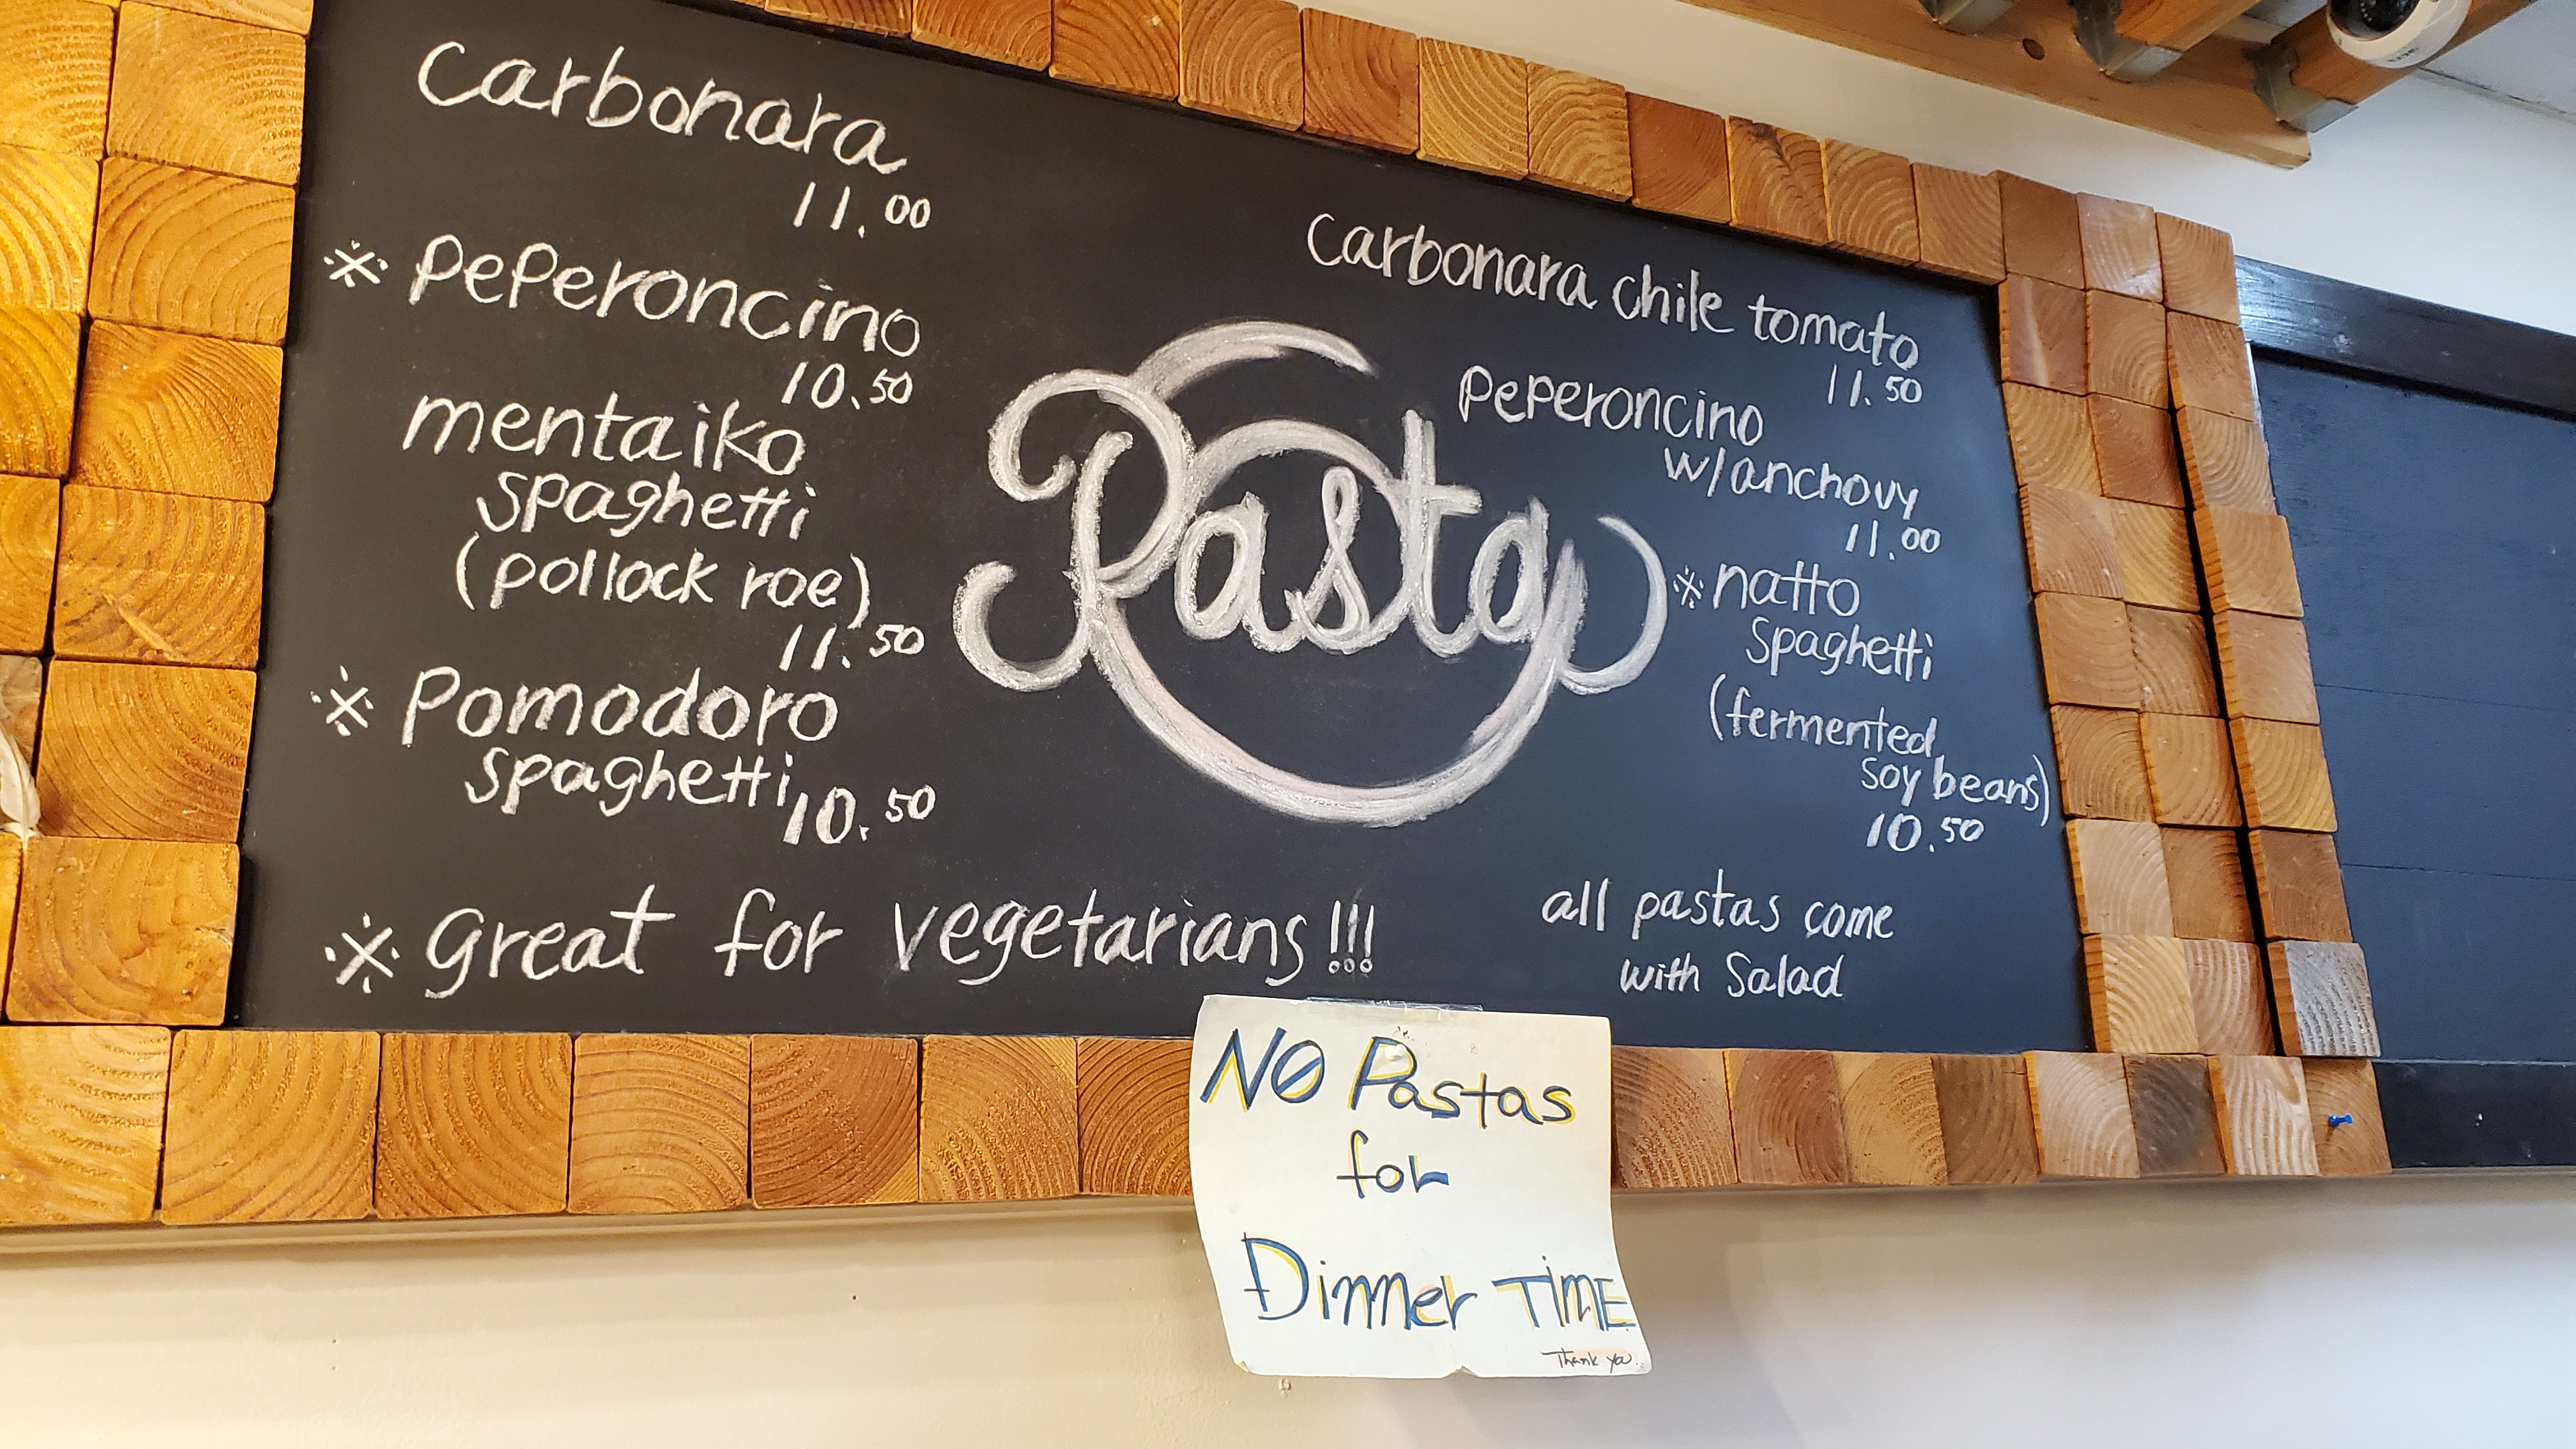 Carbonara
11.00
※ Peperoncino
10.50
mentaiko
spaghetti
(pollock roe)
11.50
※ Pomodoro
spaghetti
10.50
※ great for vegetarians!!!
Pasta
Carbonara chile tomato
11.50
Peperoncino
w/anchovy
11.00
※natto
Spaghetti
(fermented
soy beans)
10.50
all pastas come
with Salad
NO Pastas
for
Dinner TIME
Thank you